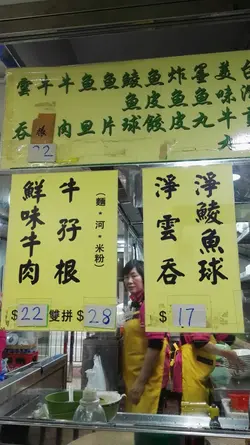 雲吞
牛腩
牛肉
魚皿
魚片
鯪魚球
魚皮餃
炸魚皮
墨魚丸
美味牛
22
鮮味牛肉
牛孖根
(麵·河·米粉)
$22 雙拼 $28
淨雲吞
淨鯪魚球
$17